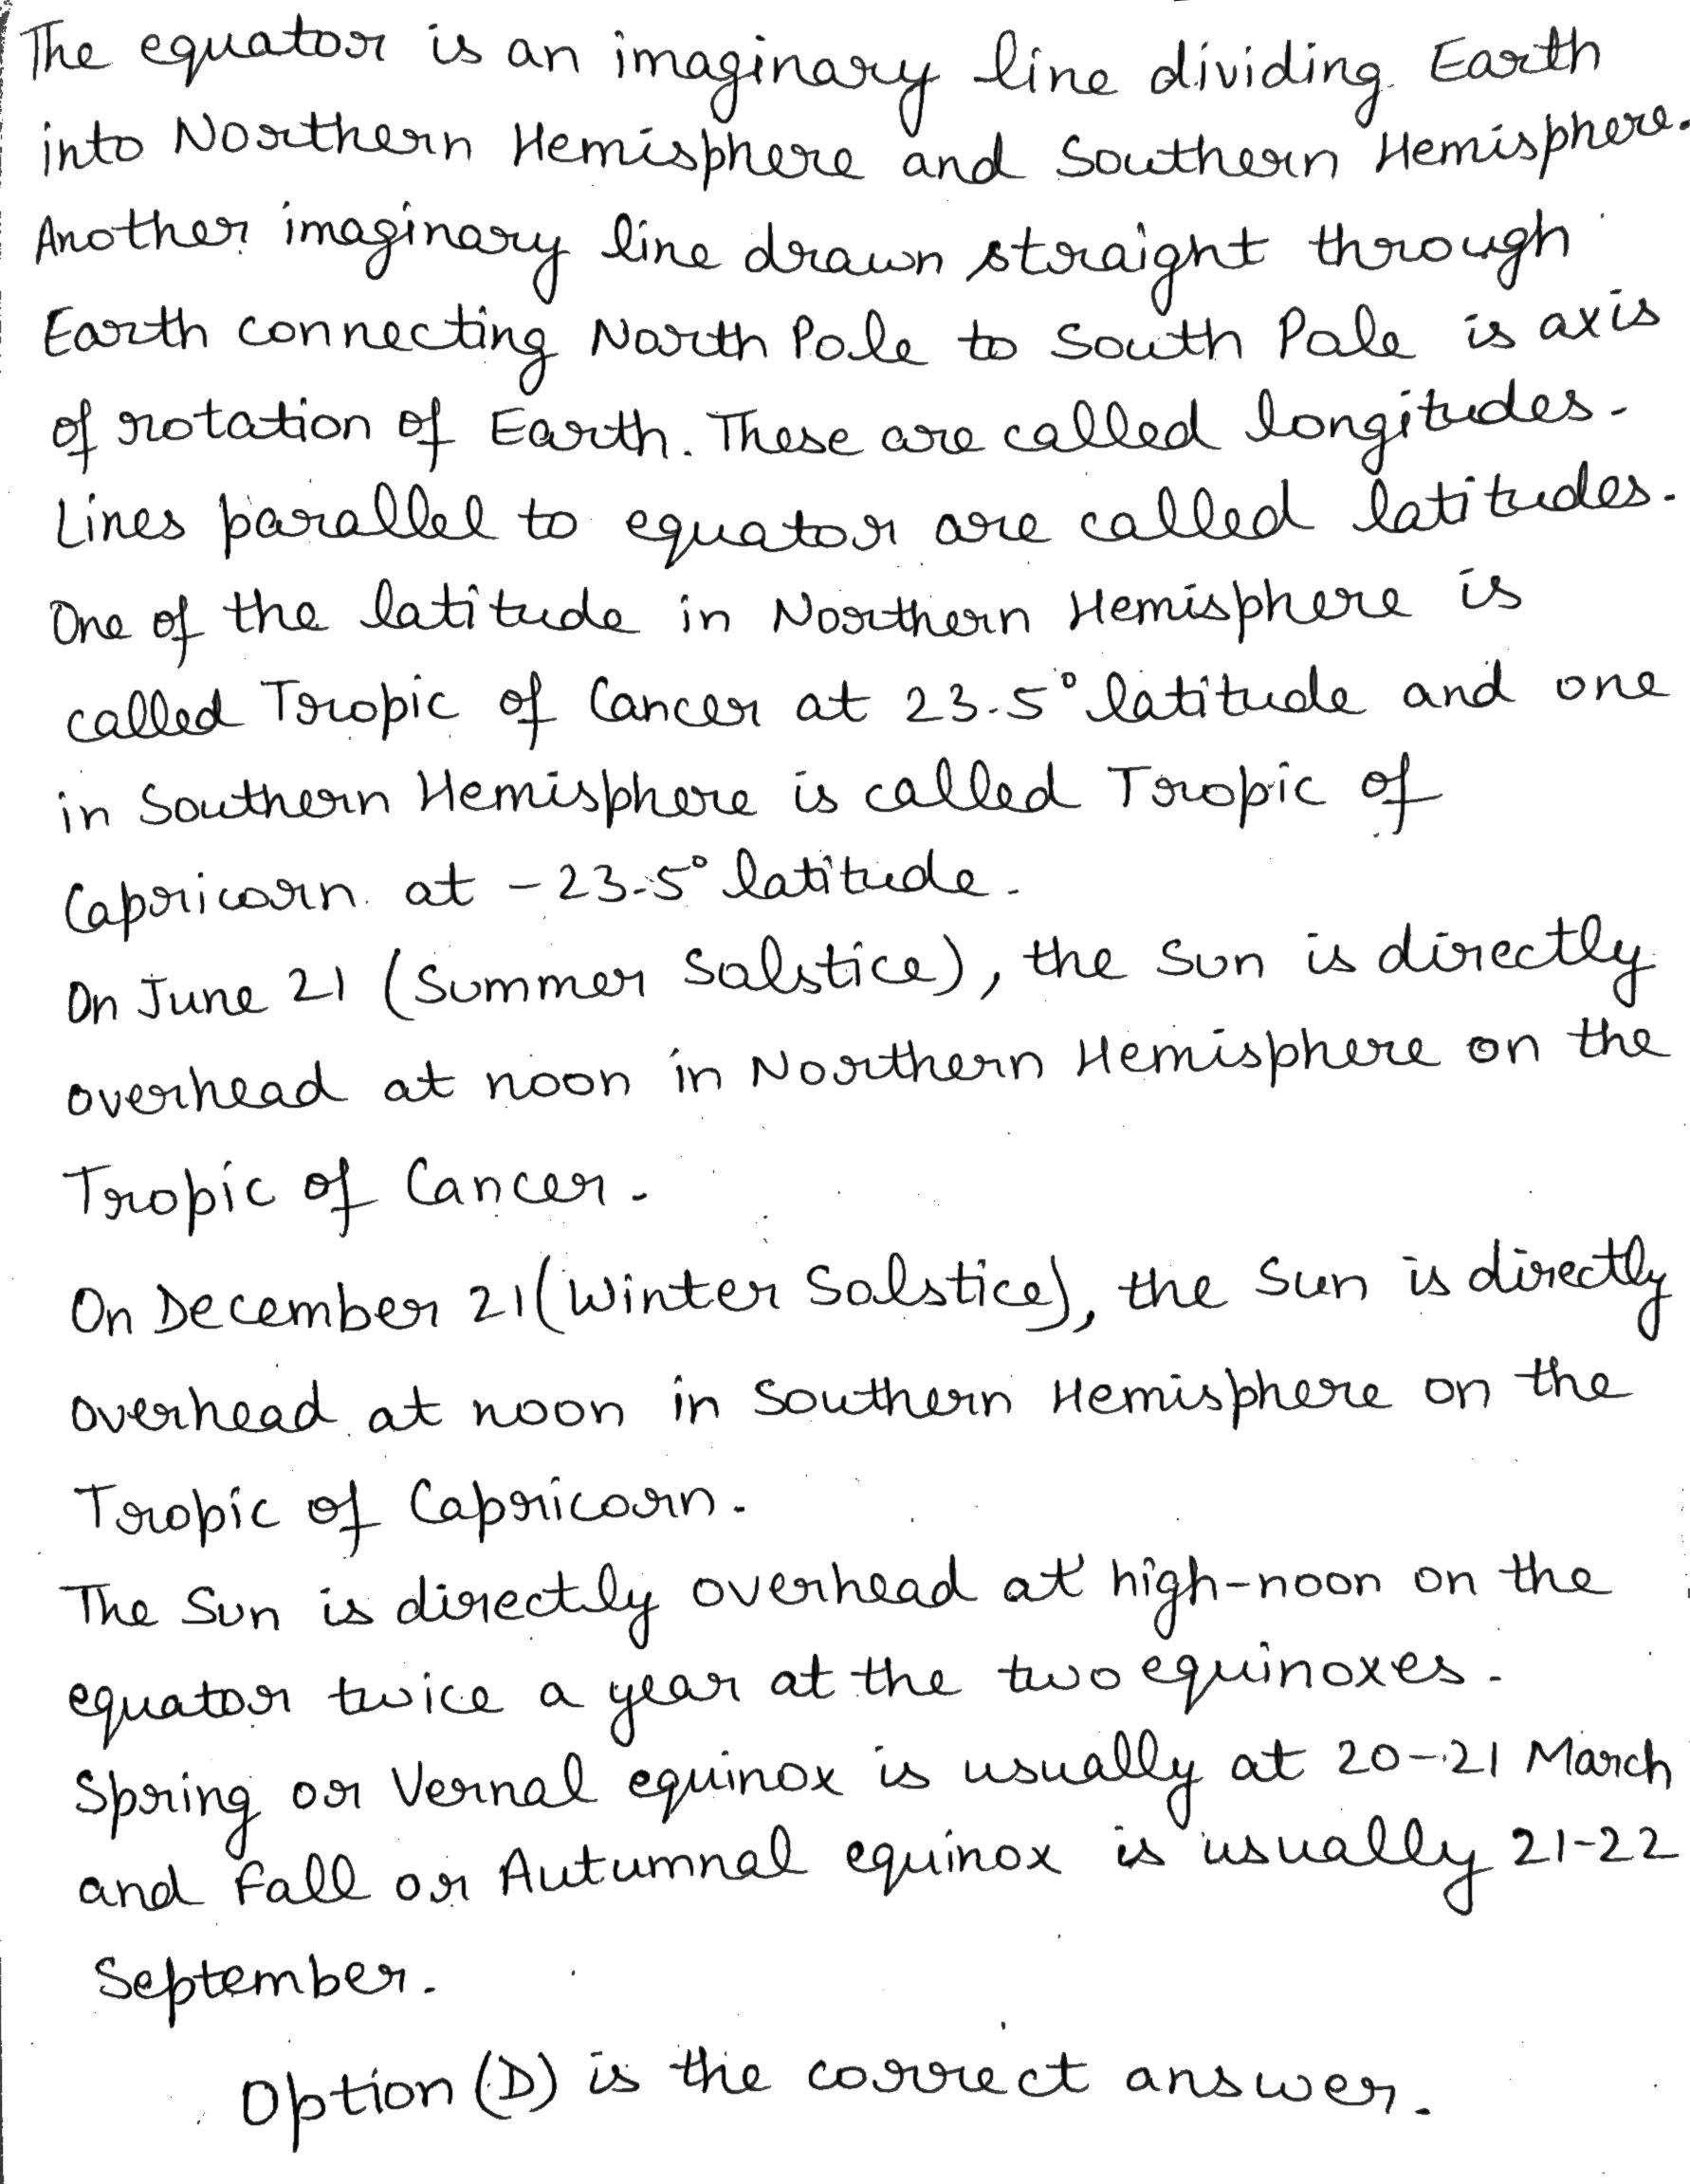 The equator is an imaginary line dividing Earth
into Northern Hemisphere and Southern Hemisphere.
Another imaginary line drawn straight through
Earth connecting North Pole to South Pole is axis
of rotation of Earth. These are called longitudes.
Lines parallel to equator are called latitudes.
One of the latitude in Northern Hemisphere is
called Tropic of Cancer at 23.5° latitude and one
in Southern Hemisphere is called Tropic of
Capricorn at -23.5° latitude.
On June 21 (Summer Solstice), the Sun is directly
overhead at noon in Northern Hemisphere on the
Tropic of Cancer.
On December 21 (Winter Solstice), the Sun is directly
overhead at noon in Southern Hemisphere on the
Tropic of Capricorn.
The Sun is directly overhead at high-noon on the
equator twice a year at the two equinoxes.
Spring or Vernal equinox is usually at 20-21 March
and Fall or Autumnal equinox is usually 21-22
September.
Option (D) is the correct answer.